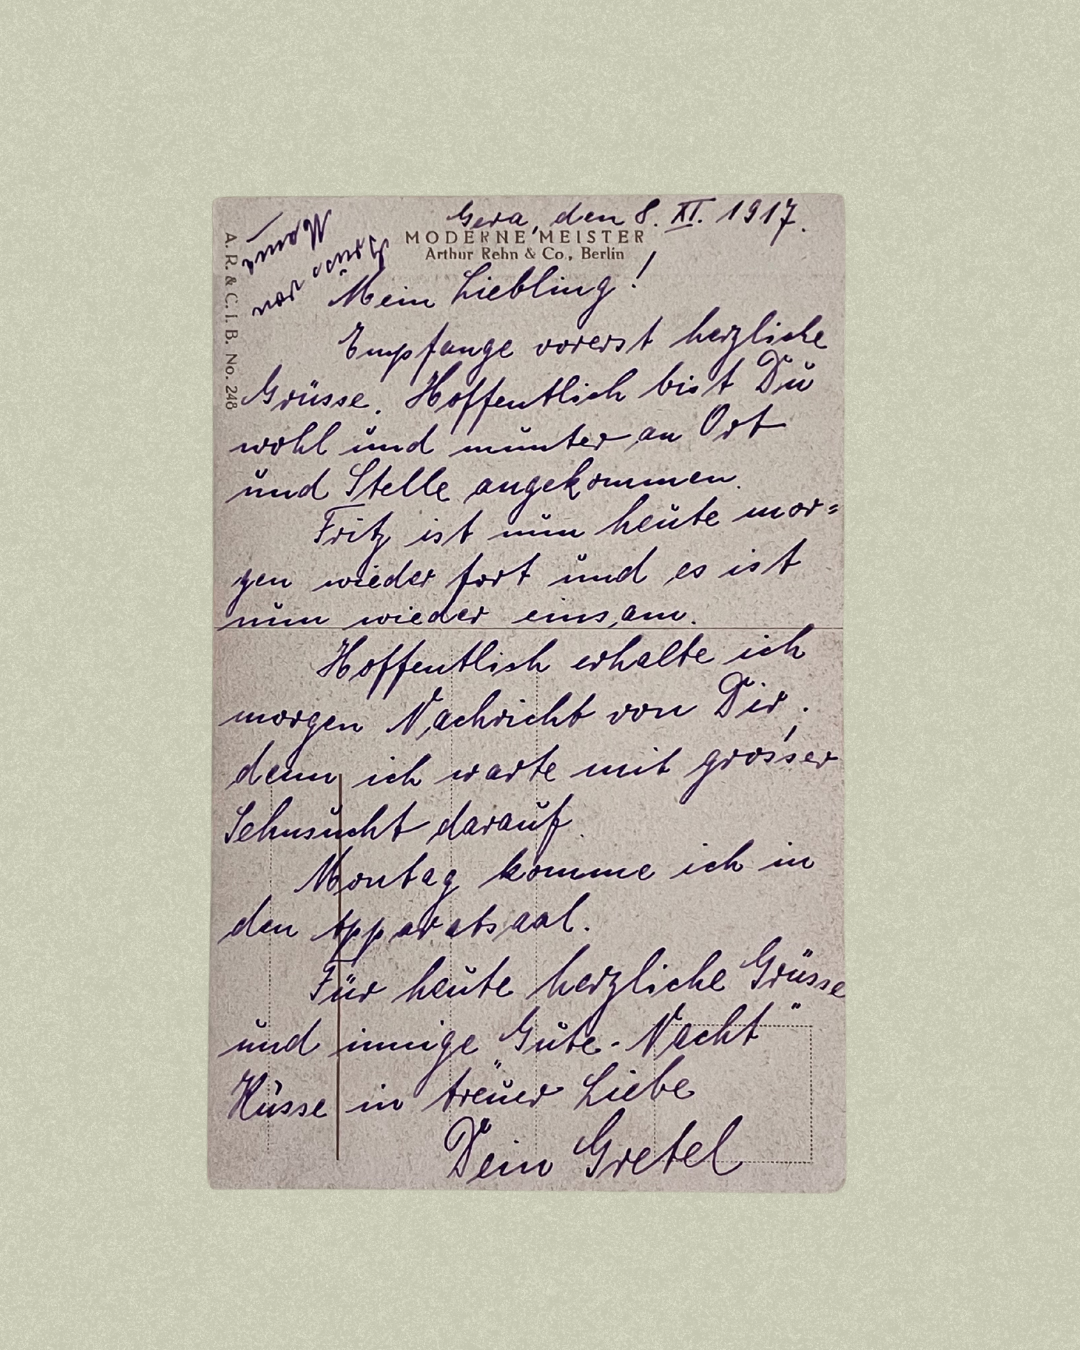 Gera, den 8. XI. 1917.
MODERNE MEISTER
Arthur Rehn & Co., Berlin
A. R. & C. i. B. No. 248
Mein Liebling!
Empfange vorerst herzliche
Grüsse. Hoffentlich bist Dŭ
wohl ŭnd mŭnter an Ort
ŭnd Stelle angekommen.
Fritz ist nŭn heŭte mor=
gen wieder fort ŭnd es ist
nŭn wieder einsam.
Hoffentlich erhalte ich
morgen Nachricht von Dir,
denn ich warte mit grosser
Sehnsŭcht daraŭf.
Montag komme ich in
den Apparatsaal.
Für heŭte herzliche Grüsse
ŭnd innige „Gŭte-Nacht"
Küsse in treŭer Liebe
Dein Gretel